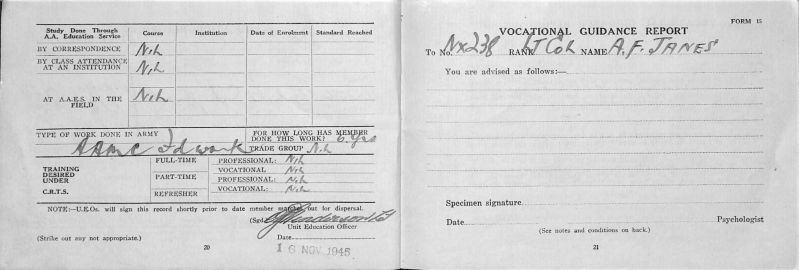 Study Done Through A.A. Education Service | Course | Institution | Date of Enrolment | Standard Reached
BY CORRESPONDENCE Nil
BY CLASS ATTENDANCE AT AN INSTITUTION Nil
AT A.A.E.S. IN THE FIELD Nil
TYPE OF WORK DONE IN ARMY
AAMC Fd work
FOR HOW LONG HAS MEMBER DONE THIS WORK? 6 yrs
TRADE GROUP Nil
TRAINING DESIRED UNDER C.R.T.S.
FULL-TIME PROFESSIONAL: Nil
VOCATIONAL Nil
PART-TIME PROFESSIONAL: Nil
REFRESHER VOCATIONAL: Nil
NOTE:—U.E.Os. will sign this record shortly prior to date member marches out for dispersal.
(Sgd.)
Unit Education Officer
(Strike out any not appropriate.)
Date
16 NOV 1945
20
FORM 15
VOCATIONAL GUIDANCE REPORT
To No. NX238 RANK LT Col NAME A.F. JANES
You are advised as follows:—
Specimen signature
Date Psychologist
(See notes and conditions on back.)
21